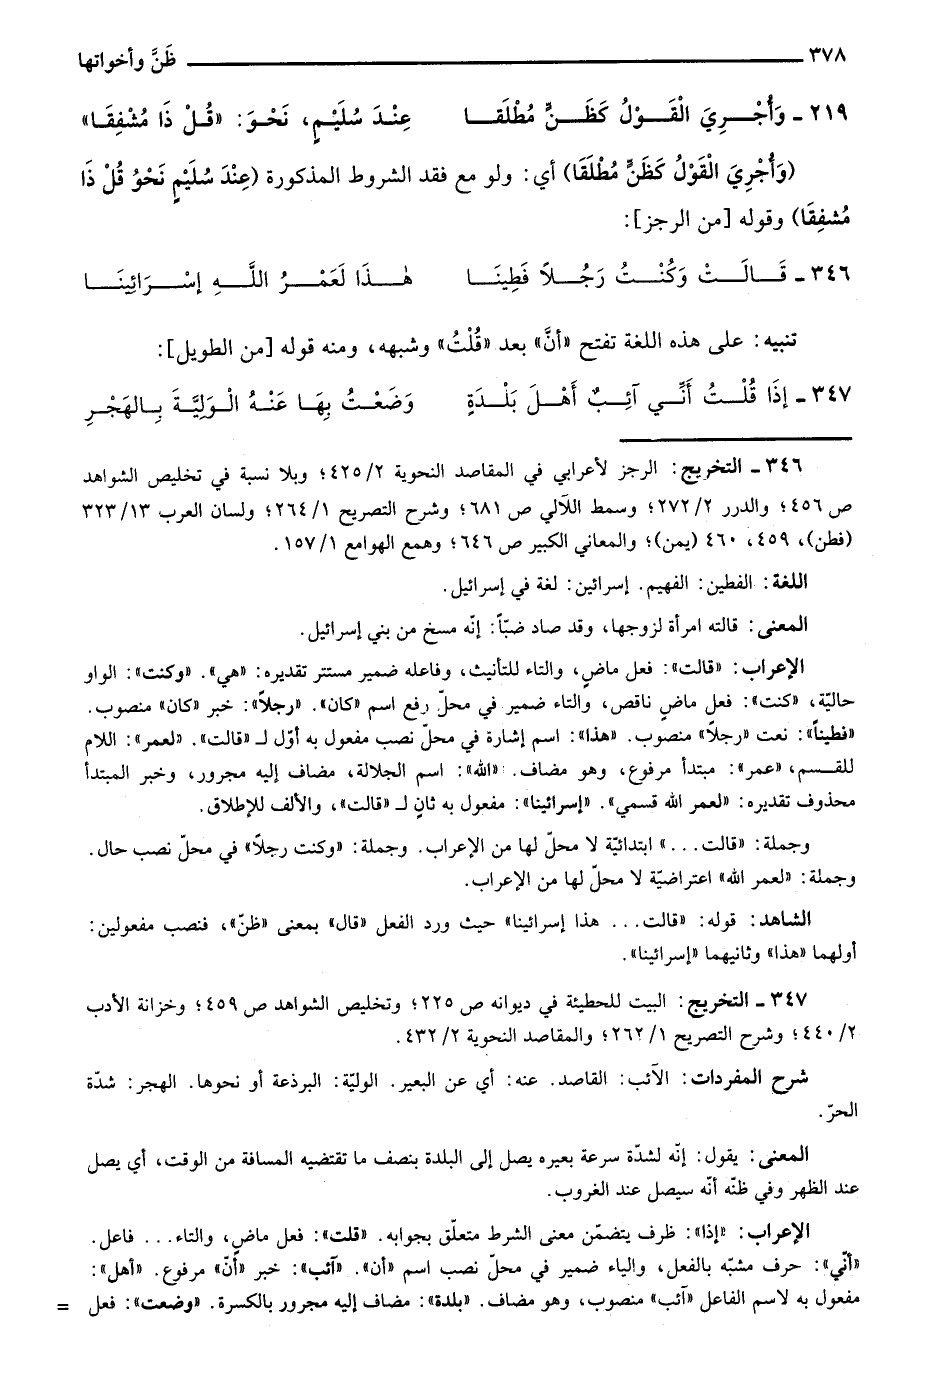 ٣٧٨ ظَنَّ وأخواتها
٢١٩ ـ وَأُجْرِيَ الْقَوْلُ كَظَنٍّ مُطْلَقا عِنْدَ سُلَيْمٍ، نَحْوَ: «قُلْ ذَا مُشْفِقَا»
(وَأُجْرِيَ القَوْلُ كَظَنٍّ مُطْلَقَا) أي: ولو مع فقد الشروط المذكورة (عِنْدَ سُلَيْمٍ نَحْوُ قُلْ ذَا
مُشفِقَا) وقوله [من الرجز]:
٣٤٦ ـ قَالَتْ وَكُنْتُ رَجُلاً فَطِينَا هٰذَا لَعَمْرُ اللَّهِ إسْرَائِينَا
تنبيه: على هذه اللغة تفتح «أنَّ» بعد «قُلْتُ» وشبهه، ومنه قوله [من الطويل]:
٣٤٧ ـ إذَا قُلْتُ أَنِّي آئِبٌ أَهْلَ بَلْدَةٍ وَضَعْتُ بِهَا عَنْهُ الْوَلِيَّةَ بِالهَجْرِ
٣٤٦ ـ التخريج: الرجز لأعرابي في المقاصد النحوية ٢/ ٤٢٥؛ وبلا نسبة في تخليص الشواهد
ص ٤٥٦؛ والدرر ٢/ ٢٧٢؛ وسمط اللآلي ص ٦٨١؛ وشرح التصريح ١/ ٢٦٤؛ ولسان العرب ١٣/ ٣٢٣
(فطن)، ٤٥٩، ٤٦٠ (يمن)؛ والمعاني الكبير ص ٦٤٦؛ وهمع الهوامع ١/ ١٥٧.
اللغة: الفطين: الفهيم. إسرائين: لغة في إسرائيل.
المعنى: قالته امرأة لزوجها، وقد صاد ضبّاً: إنّه مسخ من بني إسرائيل.
الإعراب: «قالت»: فعل ماضٍ، والتاء للتأنيث، وفاعله ضمير مستتر تقديره: «هي». «وكنت»: الواو
حاليّة، «كنت»: فعل ماضٍ ناقص، والتاء ضمير في محلّ رفع اسم «كان». «رجلاً»: خبر «كان» منصوب.
«فطيناً»: نعت «رجلاً» منصوب. «هذا»: اسم إشارة في محلّ نصب مفعول به أوّل لـ «قالت». «لعمر»: اللام
للقسم، «عمر»: مبتدأ مرفوع، وهو مضاف. «الله»: اسم الجلالة، مضاف إليه مجرور، وخبر المبتدأ
محذوف تقديره: «لعمر الله قسمي». «إسرائينا»: مفعول به ثانٍ لـ «قالت»، والألف للإطلاق.
وجملة: «قالت...» ابتدائيّة لا محلّ لها من الإعراب. وجملة: «وكنت رجلاً» في محلّ نصب حال.
وجملة: «لعمر الله» اعتراضيّة لا محلّ لها من الإعراب.
الشاهد: قوله: «قالت... هذا إسرائينا» حيث ورد الفعل «قال» بمعنى «ظنّ»، فنصب مفعولين:
أولهما «هذا» وثانيهما «إسرائينا».
٣٤٧ ـ التخريج: البيت للحطيئة في ديوانه ص ٢٢٥؛ وتخليص الشواهد ص ٤٥٩؛ وخزانة الأدب
٢/ ٤٤٠؛ وشرح التصريح ١/ ٢٦٢؛ والمقاصد النحوية ٢/ ٤٣٢.
شرح المفردات: الآئب: القاصد. عنه: أي عن البعير. الوليّة: البرذعة أو نحوها. الهجر: شدّة
الحرّ.
المعنى: يقول: إنّه لشدّة سرعة بعيره يصل إلى البلدة بنصف ما تقتضيه المسافة من الوقت، أي يصل
عند الظهر وفي ظنّه أنّه سيصل عند الغروب.
الإعراب: «إذا»: ظرف يتضمّن معنى الشرط متعلّق بجوابه. «قلت»: فعل ماضٍ، والتاء... فاعل.
«أنّي»: حرف مشبّه بالفعل، والياء ضمير في محلّ نصب اسم «أن». «آئب»: خبر «أنّ» مرفوع. «أهل»:
مفعول به لاسم الفاعل «آئب» منصوب، وهو مضاف. «بلدة»: مضاف إليه مجرور بالكسرة. «وضعت»: فعل =